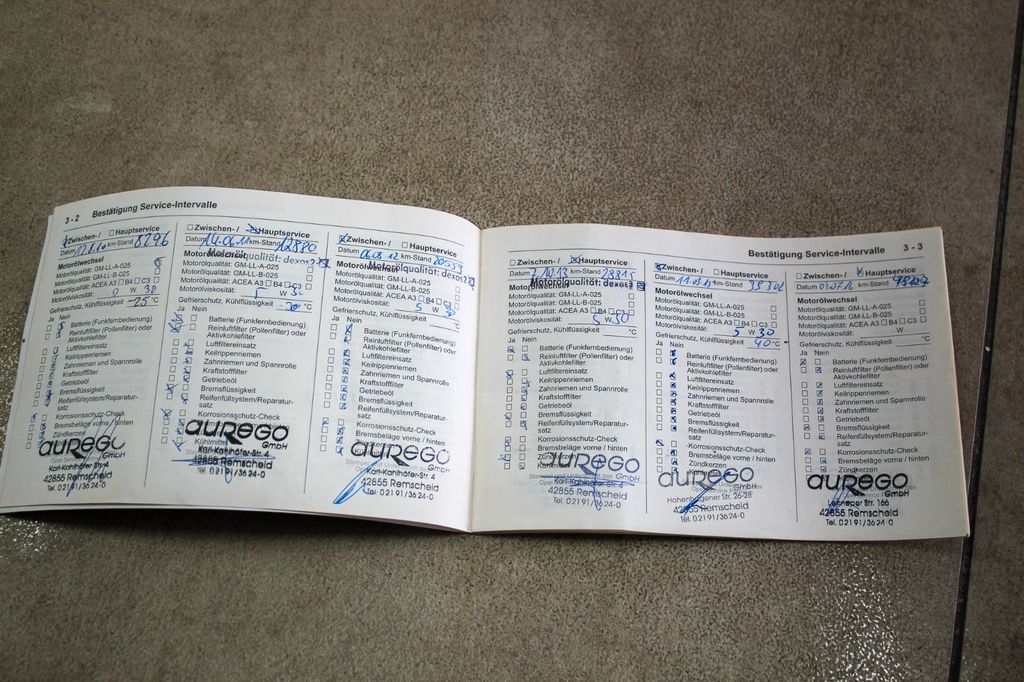 3 - 2 Bestätigung Service-Intervalle
Zwischen- / Hauptservice
Datum km-Stand 8296
Motorölwechsel
Motorölqualität: GM-LL-A-025
Motorölqualität: GM-LL-B-025
Motorölqualität: ACEA A3 B4 C3
Motorölviskosität: 0 W 30
Gefrierschutz, Kühlflüssigkeit -25 °C
Ja Nein
Batterie (Funkfernbedienung)
Reinluftfilter (Pollenfilter) oder
Aktivkohlefilter
Luftfiltereinsatz
Keilrippenriemen
Zahnriemen und Spannrolle
Kraftstofffilter
Getriebeöl
Bremsflüssigkeit
Reifenfüllsystem/Reparatur-
satz
Korrosionsschutz-Check
Bremsbeläge vorne / hinten
Zündkerzen
aurego
GmbH
Karl-Kahlhöfer-Str. 4
42855 Remscheid
Tel. 02191/3624-0
Zwischen- / Hauptservice
Datum 14.06.11 km-Stand 12880
Motorölwechsel
Motorölqualität: dexos2
Motorölqualität: GM-LL-A-025
Motorölqualität: GM-LL-B-025
Motorölqualität: ACEA A3 B4 C3
Motorölviskosität: 5 W 30
Gefrierschutz, Kühlflüssigkeit °C
Ja Nein
Batterie (Funkfernbedienung)
Reinluftfilter (Pollenfilter) oder
Aktivkohlefilter
Luftfiltereinsatz
Keilrippenriemen
Zahnriemen und Spannrolle
Kraftstofffilter
Getriebeöl
Bremsflüssigkeit
Reifenfüllsystem/Reparatur-
satz
Korrosionsschutz-Check
aurego
GmbH
Karl-Kahlhöfer-Str. 4
42855 Remscheid
Tel. 02191/3624-0
Zwischen- / Hauptservice
Datum 06.08.12 km-Stand
Motorölwechsel
Motorölqualität: dexos2
Motorölqualität: GM-LL-A-025
Motorölqualität: GM-LL-B-025
Motorölqualität: ACEA A3 B4 C3
Motorölviskosität: 5 W 30
Gefrierschutz, Kühlflüssigkeit °C
Ja Nein
Batterie (Funkfernbedienung)
Reinluftfilter (Pollenfilter) oder
Aktivkohlefilter
Luftfiltereinsatz
Keilrippenriemen
Zahnriemen und Spannrolle
Kraftstofffilter
Getriebeöl
Bremsflüssigkeit
Reifenfüllsystem/Reparatur-
satz
Korrosionsschutz-Check
Bremsbeläge vorne / hinten
aurego
GmbH
Karl-Kahlhöfer-Str. 4
42855 Remscheid
Tel. 02191/3624-0
Bestätigung Service-Intervalle 3 - 3
Zwischen- / Hauptservice
Datum km-Stand 28815
Motorölwechsel
Motorölqualität: dexos2
Motorölqualität: GM-LL-A-025
Motorölqualität: GM-LL-B-025
Motorölqualität: ACEA A3 B4 C3
Motorölviskosität: 5 W 30
Gefrierschutz, Kühlflüssigkeit °C
Ja Nein
Batterie (Funkfernbedienung)
Reinluftfilter (Pollenfilter) oder
Aktivkohlefilter
Luftfiltereinsatz
Keilrippenriemen
Zahnriemen und Spannrolle
Kraftstofffilter
Getriebeöl
Bremsflüssigkeit
Reifenfüllsystem/Reparatur-
satz
Korrosionsschutz-Check
Bremsbeläge vorne / hinten
aurego
GmbH
Karl-Kahlhöfer-Str. 4
42855 Remscheid
Tel. 02191/3624-0
Zwischen- / Hauptservice
Datum km-Stand
Motorölwechsel
Motorölqualität: GM-LL-A-025
Motorölqualität: GM-LL-B-025
Motorölqualität: ACEA A3 B4 C3
Motorölviskosität: 5 W 30
Gefrierschutz, Kühlflüssigkeit -40 °C
Ja Nein
Batterie (Funkfernbedienung)
Reinluftfilter (Pollenfilter) oder
Aktivkohlefilter
Luftfiltereinsatz
Keilrippenriemen
Zahnriemen und Spannrolle
Kraftstofffilter
Getriebeöl
Bremsflüssigkeit
Reifenfüllsystem/Reparatur-
satz
Korrosionsschutz-Check
Bremsbeläge vorne / hinten
Zündkerzen
aurego
GmbH
Str. 26-28
42855 Remscheid
Tel. 02191/3624-0
Zwischen- / Hauptservice
Datum km-Stand
Motorölwechsel
Motorölqualität: GM-LL-A-025
Motorölqualität: GM-LL-B-025
Motorölqualität: ACEA A3 B4 C3
Motorölviskosität: W
Gefrierschutz, Kühlflüssigkeit °C
Ja Nein
Batterie (Funkfernbedienung)
Reinluftfilter (Pollenfilter) oder
Aktivkohlefilter
Luftfiltereinsatz
Keilrippenriemen
Zahnriemen und Spannrolle
Kraftstofffilter
Getriebeöl
Bremsflüssigkeit
Reifenfüllsystem/Reparatur-
satz
Korrosionsschutz-Check
Bremsbeläge vorne / hinten
Zündkerzen
aurego
GmbH
Lenneper Str. 166
42855 Remscheid
Tel. 02191/3624-0